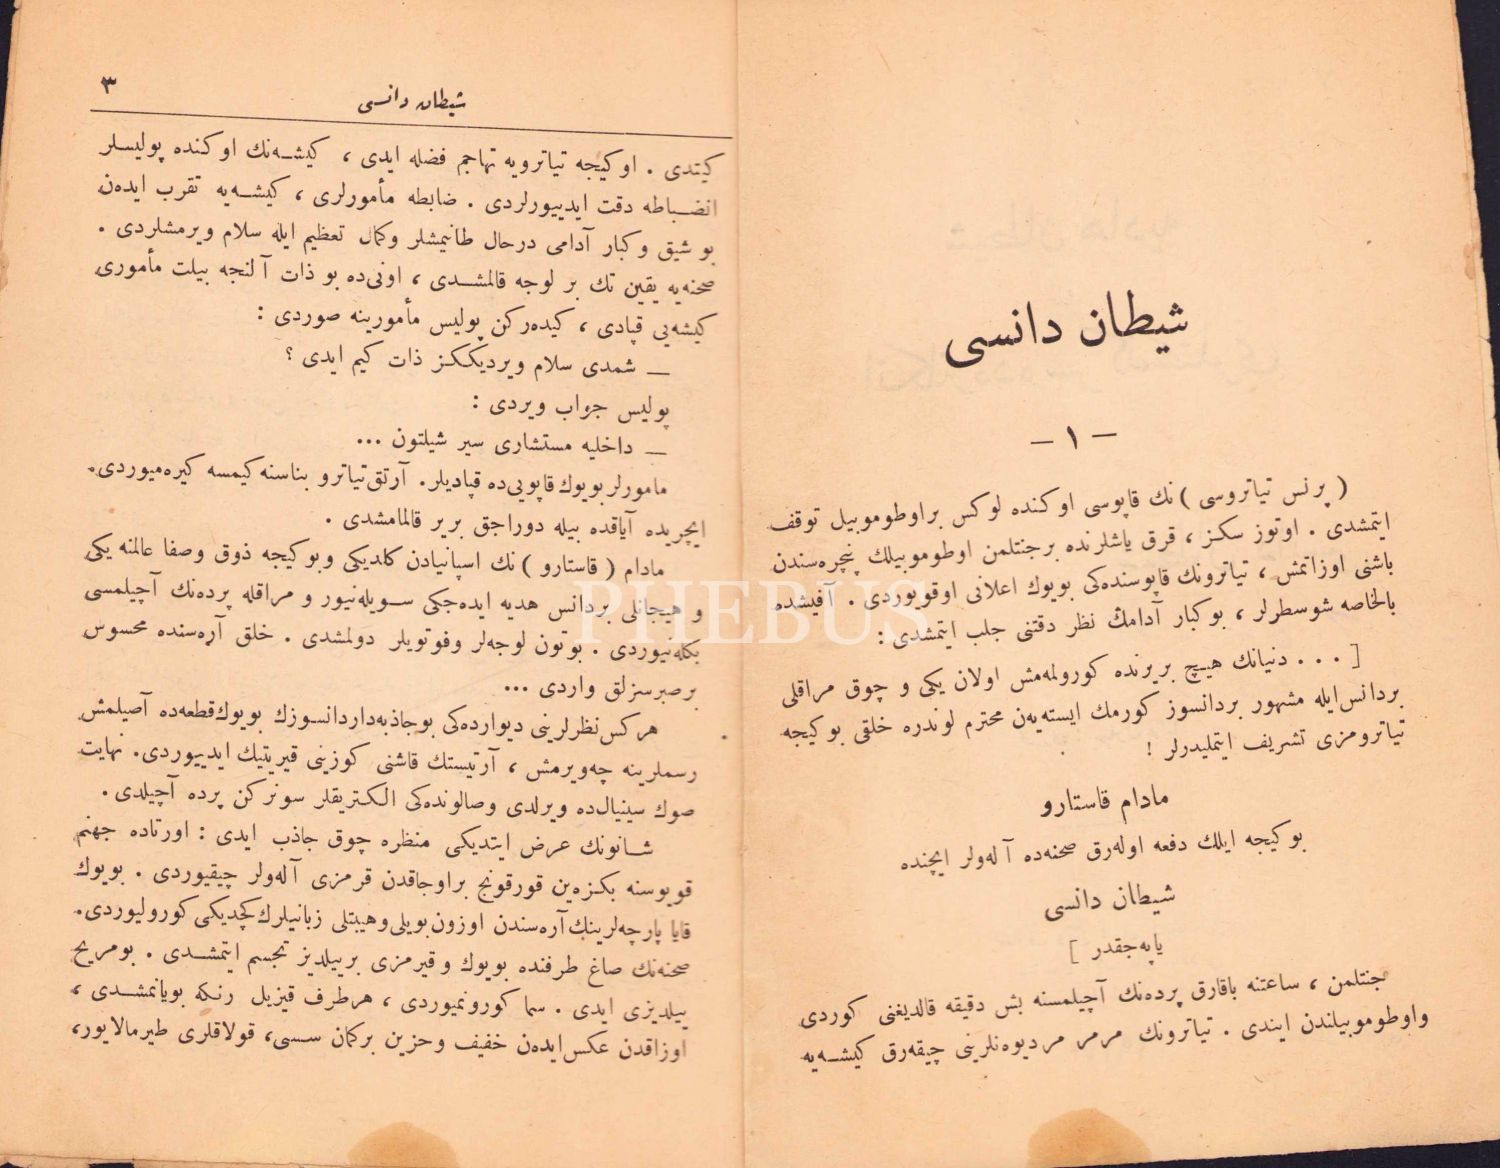 شیطان دانسی
— ١ —
( پرنس تیاتروسی ) نك قاپوسی اوكنده لوكس بر اوطوموبیل توقف
ایتمشدی . اوتوز سكز ، قرق یاشلرنده بر جنتلمن اوطوموبیلك پنچره‌سندن
باشنی اوزاتمش ، تیاترونك قاپوسنده‌كی بویوك اعلانی اوقویوردی . آفیشده
بالخاصه شو سطرلر ، بو كبار آدامك نظر دقتنی جلب ایتمشدی :
[ . . . دنیانك هیچ بر یرنده كورولمه‌مش اولان یكی و چوق مراقلی
بر دانس ایله مشهور بر دانسوز كورمك ایسته‌یه‌ن محترم لوندره خلقی بو كیجه
تیاترومزی تشریف ایتملیدرلر !
مادام قاستارو
بو كیجه ایلك دفعه اوله‌رق صحنه‌ده آله‌ولر ایچنده
شیطان دانسی
یاپه‌جقدر ]
جنتلمن ، ساعتنه باقارق پرده‌نك آچیلمسنه بش دقیقه قالدیغنی كوردی
و اوطوموبیلندن ایندی . تیاترونك مرمر مردیوه‌نلرینی چیقه‌رق كیشه‌یه
شیطان دانسی
٣
كیتدی . او كیجه تیاترویه تهاجم فضله ایدی ، كیشه‌نك اوكنده پولیسلر
انضباطه دقت ایدییورلردی . ضابطه مأمورلری ، كیشه‌یه تقرب ایده‌ن
بو شیق و كبار آدامی درحال طانیمشلر و كمال تعظیم ایله سلام ویرمشلردی .
صحنه‌یه یقین تك بر لوجه قالمشدی ، اونی‌ده بو ذات آلنجه بیلت مأموری
كیشه‌یی قپادی ، كیده‌ركن پولیس مأمورینه صوردی :
— شمدی سلام ویردیككز ذات كیم ایدی ؟
پولیس جواب ویردی :
— داخلیه مستشاری سیر شیلتون ...
مامورلر بویوك قاپویی‌ده قپادیلر. آرتق تیاترو بناسنه كیمسه كیره‌میوردی.
ایچریده آیاقده بیله دوراجق بر یر قالمامشدی .
مادام ( قاستارو ) نك اسپانیادن كلدیكی و بو كیجه ذوق و صفا عالمنه یكی
و هیجانلی بر دانس هدیه ایده‌جكی سویله‌نیور و مراقله پرده‌نك آچیلمسی
بكله‌نیوردی . بوتون لوجه‌لر و فوتویلر دولمشدی . خلق آره‌سنده محسوس
بر صبرسزلق واردی ...
هركس نظرلرینی دیوارده‌كی بو جاذبه‌دار دانسوزك بویوك قطعه‌ده آصیلمش
رسملرینه چه‌ویرمش ، آرتیستك قاشنی كوزینی قیریتیك ایدییوردی. نهایت
صوك سینیال‌ده ویرلدی و صالونده‌كی الكتریقلر سونركن پرده آچیلدی .
شانونك عرض ایتدیكی منظره چوق جاذب ایدی : اورتاده جهنم
قویوسنه بكزه‌ین قورقونج بر اوجاقدن قرمزی آله‌ولر چیقیوردی . بویوك
قایا پارچه‌لرینك آره‌سندن اوزون بویلی و هیبتلی زبانیلرك كچدیكی كورولیوردی.
صحنه‌نك صاغ طرفنده بویوك و قیرمزی بر ییلدیز تجسم ایتمشدی . بو مریخ
ییلدیزی ایدی . سما كورونمیوردی ، هر طرف قیزیل رنكه بویانمشدی ،
اوزاقدن عكس ایده‌ن خفیف و حزین بر كمان سسی، قولاقلری طیرمالایور،
PHEBUS